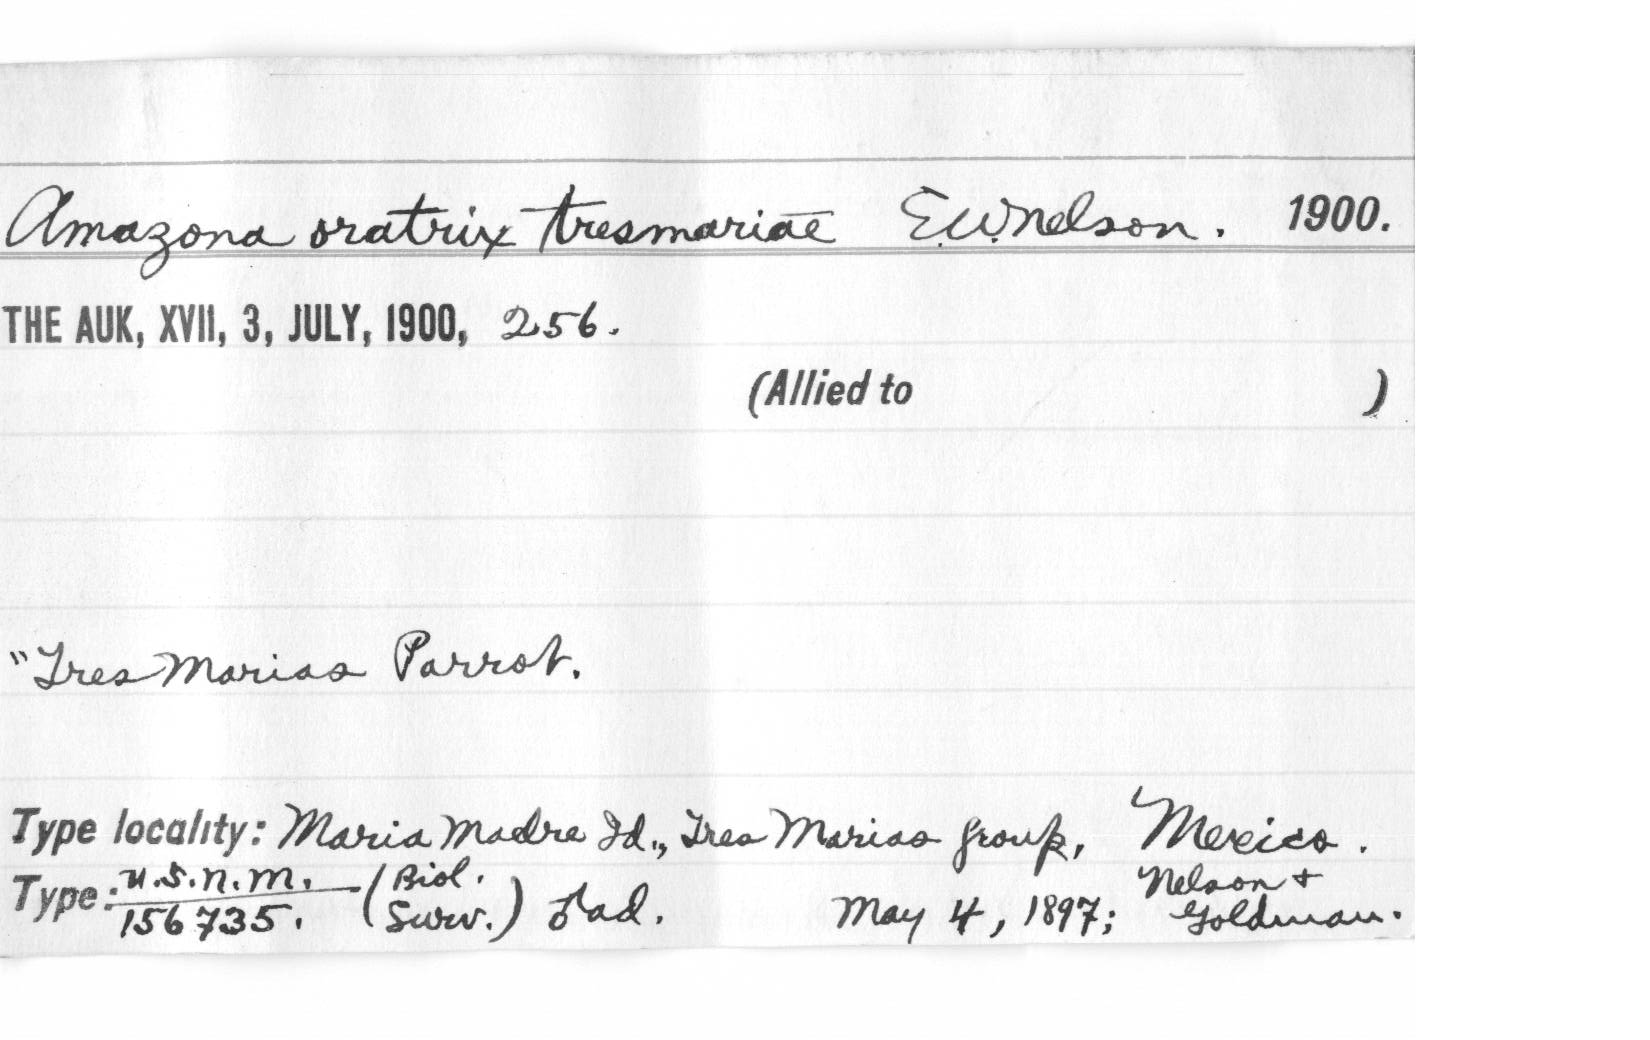 Amazona oratrix tresmariae E.W.Nelson. 1900.
THE AUK, XVII, 3, JULY, 1900, 256.
(Allied to )
"Tres Marias Parrot.
Type locality: Maria Madre Id., Tres Marias group, Mexico.
Type: U.S.N.M. 156735. (Biol. Surv.) ♂ad. May 4, 1897; Nelson + Goldman.